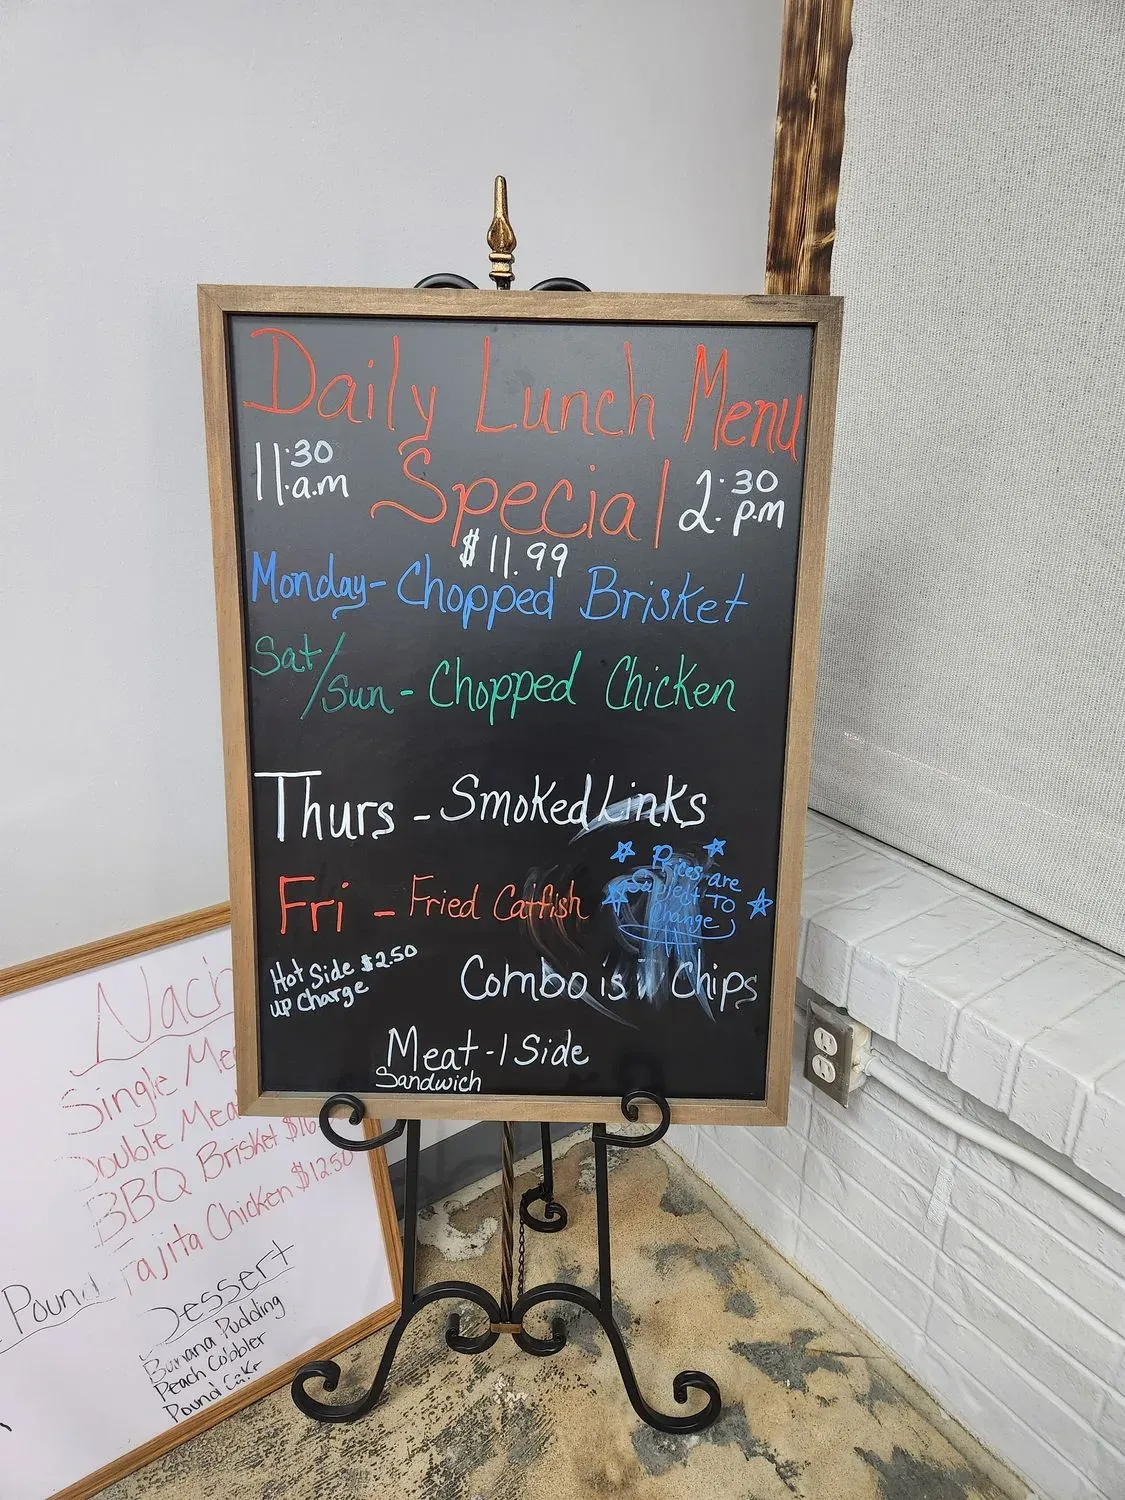 Daily Lunch Menu
11:30 a.m Special 2:30 p.m
$11.99
Monday - Chopped Brisket
Sat/Sun - Chopped Chicken
Thurs - Smoked Links
Fri - Fried Catfish
Prices are
Subject To
Change
Hot Side $2.50
up Charge
Combo is Chips
Meat - 1 Side
Sandwich
Single
Double Mea
BBQ Brisket
Fajita Chicken $12.50
Pound
Dessert
Banana Pudding
Peach Cobbler
Pound